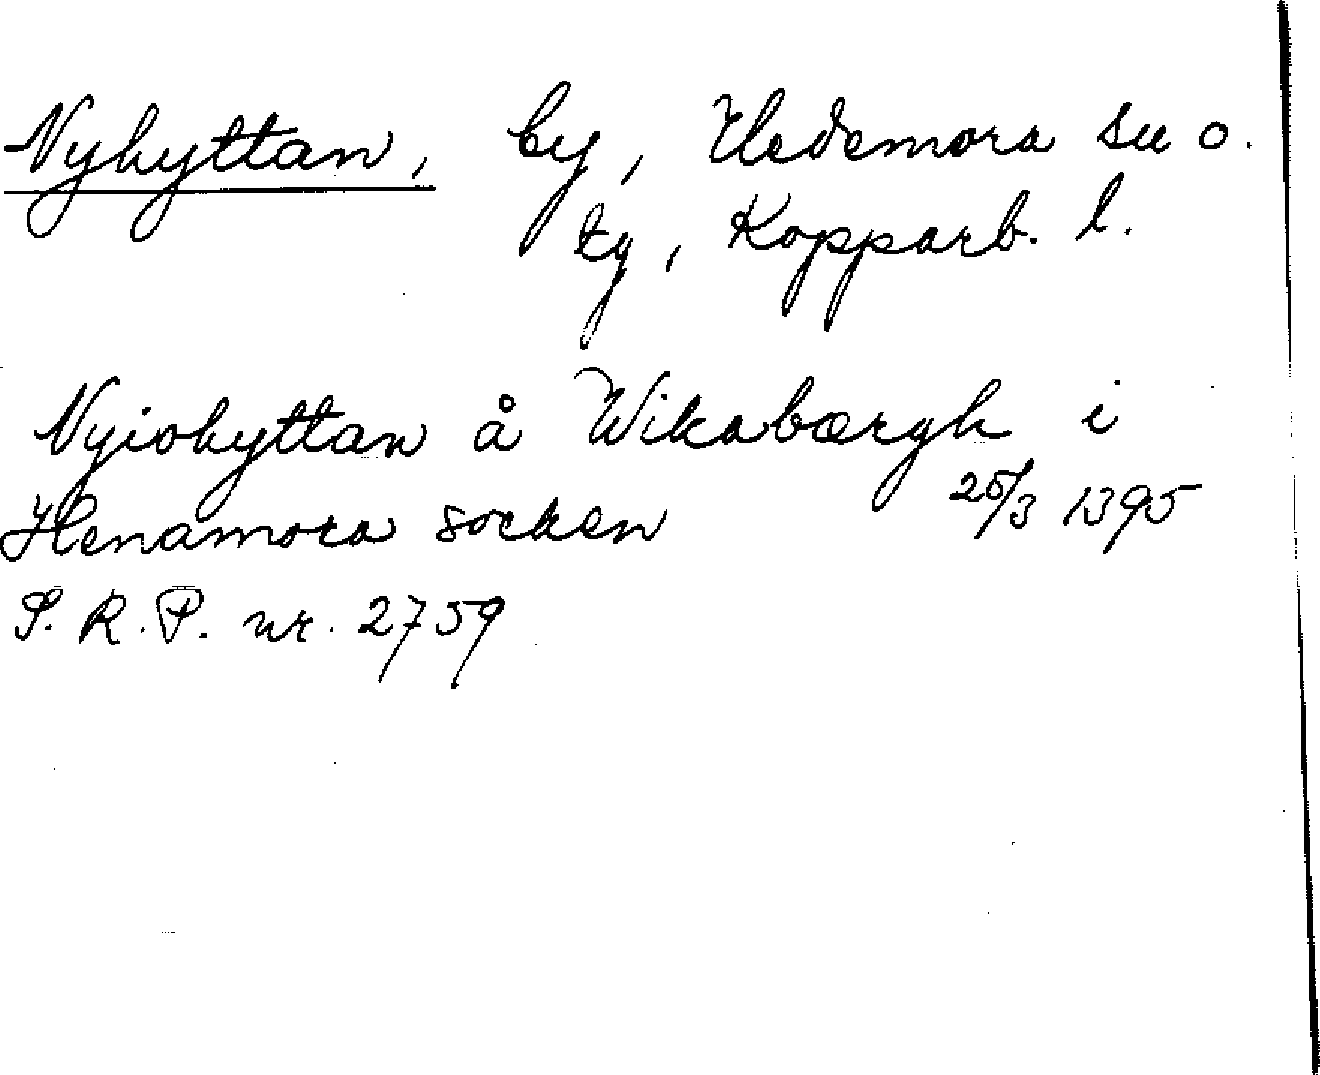 Nyhyttan, by, Hedemora sn o.
tg, Kopparb. l.
Nyiohyttan å Wikabærgh i
Henamora socken 25/3 1395
S. R. P. nr. 2759